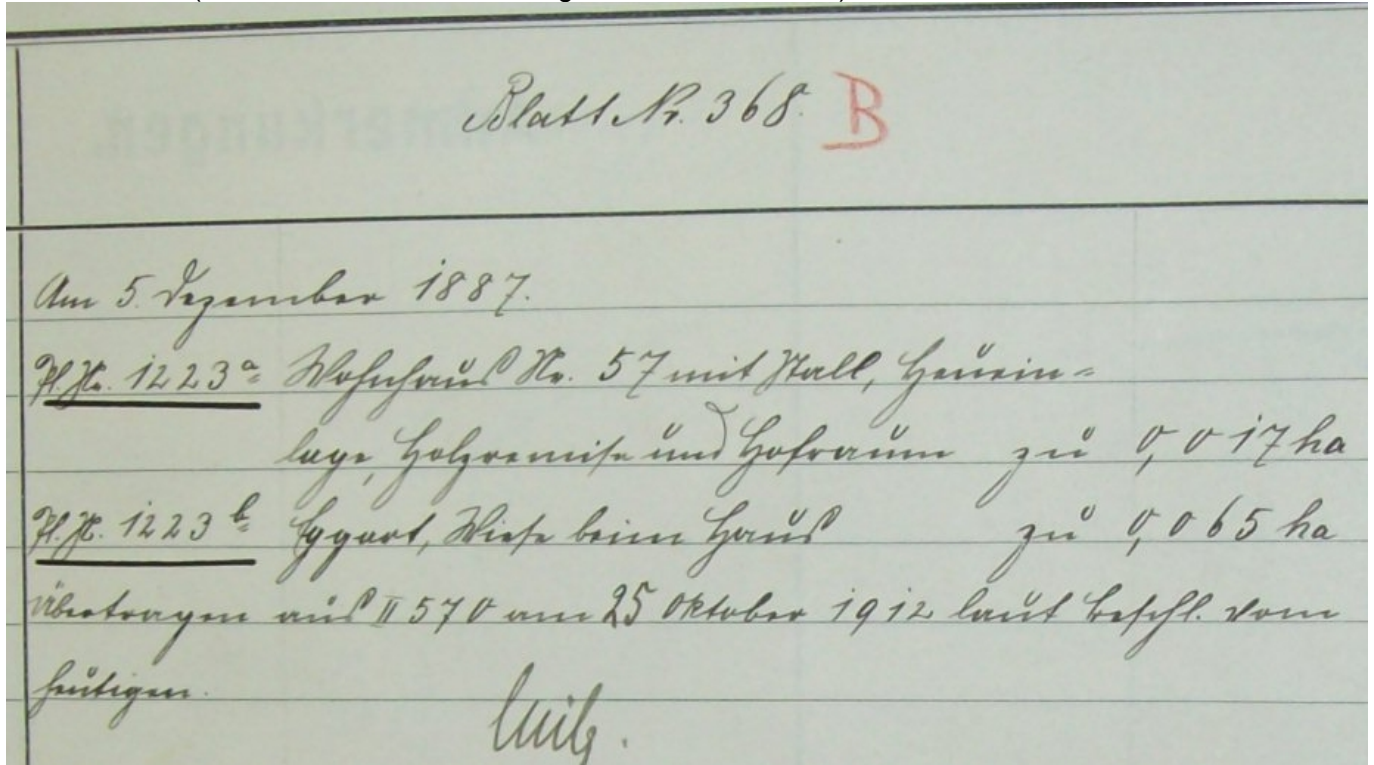 Blatt Nr. 368. B
Am 5. Dezember 1887.
Pl. Nr. 1223a Wohnhaus Nr. 57 mit Stall, Heuein=
lage, Holzremise und Hofraum zu 0,017 ha
Pl. N. 1223b Eggart, Wiese beim Haus zu 0,065 ha
übertragen aus II 570 am 25 Oktober 1912 laut Beschl. vom
heutigen.